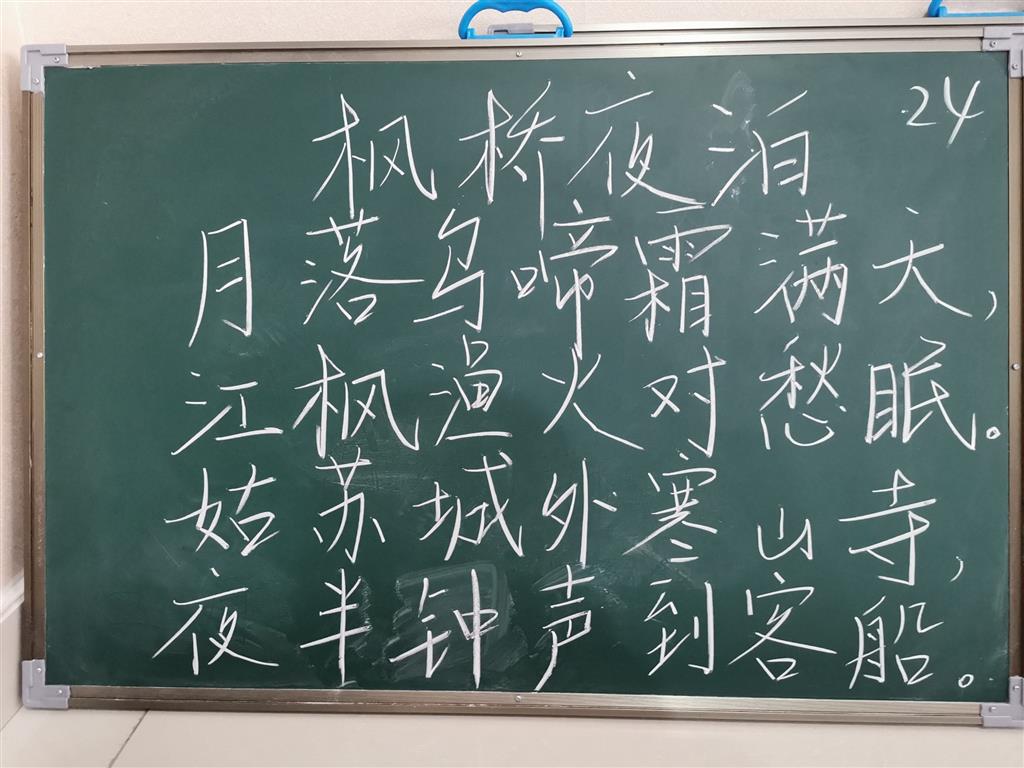 24
枫桥夜泊
月落乌啼霜满天，
江枫渔火对愁眠。
姑苏城外寒山寺，
夜半钟声到客船。